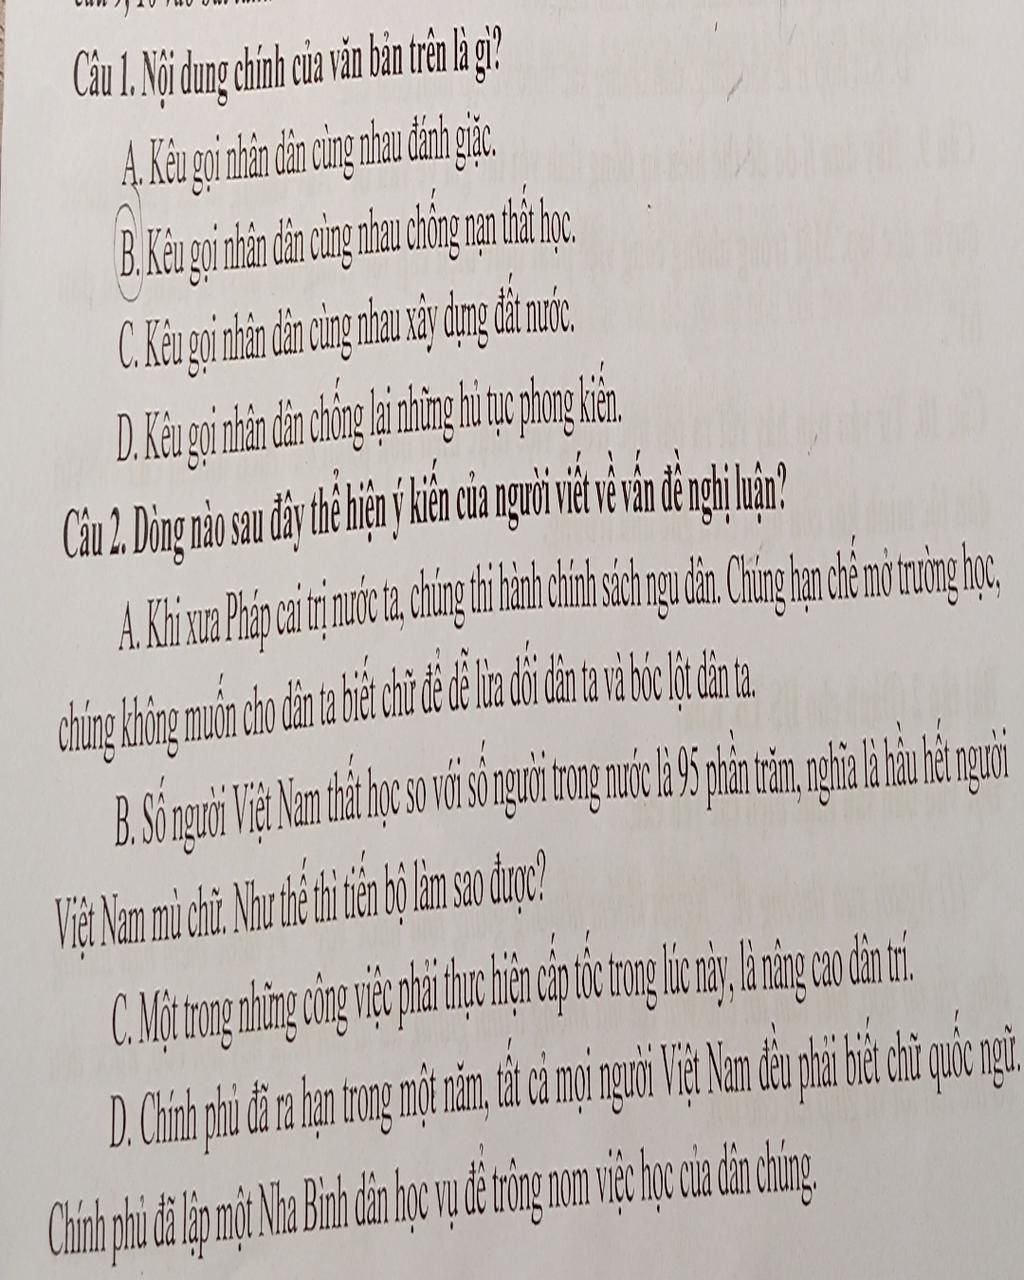 Câu 1. Nội dung chính của văn bản trên là gì?
A. Kêu gọi nhân dân cùng nhau đánh giặc.
B. Kêu gọi nhân dân cùng nhau chống nạn thất học.
C. Kêu gọi nhân dân cùng nhau xây dựng đất nước.
D. Kêu gọi nhân dân chống lại những hủ tục phong kiến.
Câu 2. Dòng nào sau đây thể hiện ý kiến của người viết về vấn đề nghị luận?
A. Khi xưa Pháp cai trị nước ta, chúng thi hành chính sách ngu dân. Chúng hạn chế mở trường học,
chúng không muốn cho dân ta biết chữ để dễ lừa dối dân ta và bóc lột dân ta.
B. Số người Việt Nam thất học so với số người trong nước là 95 phần trăm, nghĩa là hầu hết người
Việt Nam mù chữ. Như thế thì tiến bộ làm sao được?
C. Một trong những công việc phải thực hiện cấp tốc trong lúc này, là nâng cao dân trí.
D. Chính phủ đã ra hạn trong một năm, tất cả mọi người Việt Nam đều phải biết chữ quốc ngữ.
Chính phủ đã lập một Nha Bình dân học vụ để trông nom việc học của dân chúng.